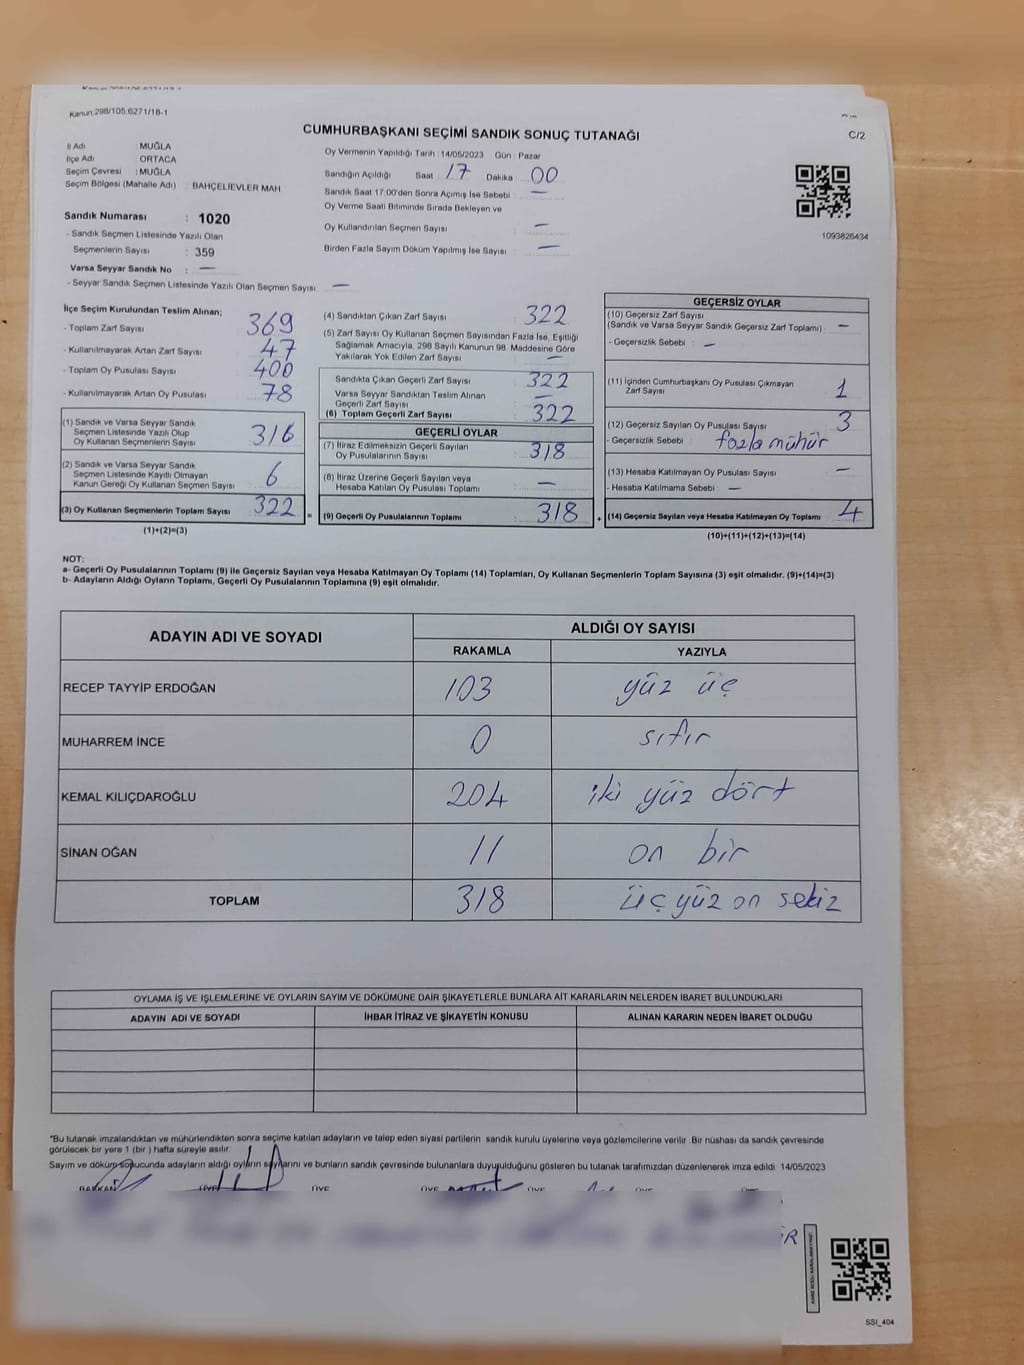 Kanun:298/105,6271/18-1
CUMHURBAŞKANI SEÇİMİ SANDIK SONUÇ TUTANAĞI
C/2
İl Adı : MUĞLA
İlçe Adı : ORTACA
Seçim Çevresi : MUĞLA
Seçim Bölgesi (Mahalle Adı) : BAHÇELİEVLER MAH
Oy Vermenin Yapıldığı Tarih : 14/05/2023 Gün : Pazar
Sandığın Açıldığı Saat : 17 Dakika : 00
Sandık Saat 17:00'den Sonra Açımış İse Sebebi : —
Oy Verme Saati Bitiminde Sırada Bekleyen ve
Oy Kullandırılan Seçmen Sayısı : —
Birden Fazla Sayım Döküm Yapılmış İse Sayısı : —
1093826434
Sandık Numarası : 1020
- Sandık Seçmen Listesinde Yazılı Olan
Seçmenlerin Sayısı : 359
Varsa Seyyar Sandık No : —
- Seyyar Sandık Seçmen Listesinde Yazılı Olan Seçmen Sayısı: —
İlçe Seçim Kurulundan Teslim Alınan;
- Toplam Zarf Sayısı 369
- Kullanılmayarak Artan Zarf Sayısı : 47
- Toplam Oy Pusulası Sayısı : 400
- Kullanılmayarak Artan Oy Pusulası : 78
(1) Sandık ve Varsa Seyyar Sandık
Seçmen Listesinde Yazılı Olup
Oy Kullanan Seçmenlerin Sayısı : 316
(2) Sandık ve Varsa Seyyar Sandık
Seçmen Listesinde Kayıtlı Olmayan
Kanun Gereği Oy Kullanan Seçmen Sayısı : 6
(3) Oy Kullanan Seçmenlerin Toplam Sayısı : 322
(1)+(2)=(3)
(4) Sandıktan Çıkan Zarf Sayısı : 322
(5) Zarf Sayısı Oy Kullanan Seçmen Sayısından Fazla İse, Eşitliği
Sağlamak Amacıyla, 298 Sayılı Kanunun 98. Maddesine Göre
Yakılarak Yok Edilen Zarf Sayısı : —
Sandıkta Çıkan Geçerli Zarf Sayısı : 322
Varsa Seyyar Sandıktan Teslim Alınan
Geçerli Zarf Sayısı : —
(6) Toplam Geçerli Zarf Sayısı : 322
GEÇERLİ OYLAR
(7) İtiraz Edilmeksizin Geçerli Sayılan
Oy Pusulalarının Sayısı : 318
(8) İtiraz Üzerine Geçerli Sayılan veya
Hesaba Katılan Oy Pusulası Toplamı : —
= (9) Geçerli Oy Pusulalarının Toplamı : 318
GEÇERSİZ OYLAR
(10) Geçersiz Zarf Sayısı
(Sandık ve Varsa Seyyar Sandık Geçersiz Zarf Toplamı) : —
- Geçersizlik Sebebi : —
(11) İçinden Cumhurbaşkanı Oy Pusulası Çıkmayan
Zarf Sayısı : 1
(12) Geçersiz Sayılan Oy Pusulası Sayısı : 3
- Geçersizlik Sebebi : fazla mühür
(13) Hesaba Katılmayan Oy Pusulası Sayısı : —
- Hesaba Katılmama Sebebi : —
+ (14) Geçersiz Sayılan veya Hesaba Katılmayan Oy Toplamı : 4
(10)+(11)+(12)+(13)=(14)
NOT:
a- Geçerli Oy Pusulalarının Toplamı (9) ile Geçersiz Sayılan veya Hesaba Katılmayan Oy Toplamı (14) Toplamları, Oy Kullanan Seçmenlerin Toplam Sayısına (3) eşit olmalıdır. (9)+(14)=(3)
b- Adayların Aldığı Oyların Toplamı, Geçerli Oy Pusulalarının Toplamına (9) eşit olmalıdır.
ADAYIN ADI VE SOYADI
ALDIĞI OY SAYISI
RAKAMLA YAZIYLA
RECEP TAYYİP ERDOĞAN 103 yüz üç
MUHARREM İNCE 0 sıfır
KEMAL KILIÇDAROĞLU 204 iki yüz dört
SİNAN OĞAN 11 on bir
TOPLAM 318 üç yüz on sekiz
OYLAMA İŞ VE İŞLEMLERİNE VE OYLARIN SAYIM VE DÖKÜMÜNE DAİR ŞİKAYETLERLE BUNLARA AİT KARARLARIN NELERDEN İBARET BULUNDUKLARI
ADAYIN ADI VE SOYADI İHBAR İTİRAZ VE ŞİKAYETİN KONUSU ALINAN KARARIN NEDEN İBARET OLDUĞU
*Bu tutanak imzalandıktan ve mühürlendikten sonra seçime katılan adayların ve talep eden siyasi partilerin sandık kurulu üyelerine veya gözlemcilerine verilir. Bir nüshası da sandık çevresinde
görülecek bir yere 1 (bir ) hafta süreyle asılır.
Sayım ve döküm sonucunda adayların aldığı oyların sayılarını ve bunların sandık çevresinde bulunanlara duyurulduğunu gösteren bu tutanak tarafımızdan düzenlenerek imza edildi. 14/05/2023
BAŞKAN ÜYE ÜYE ÜYE ÜYE ÜYE
SSI_404